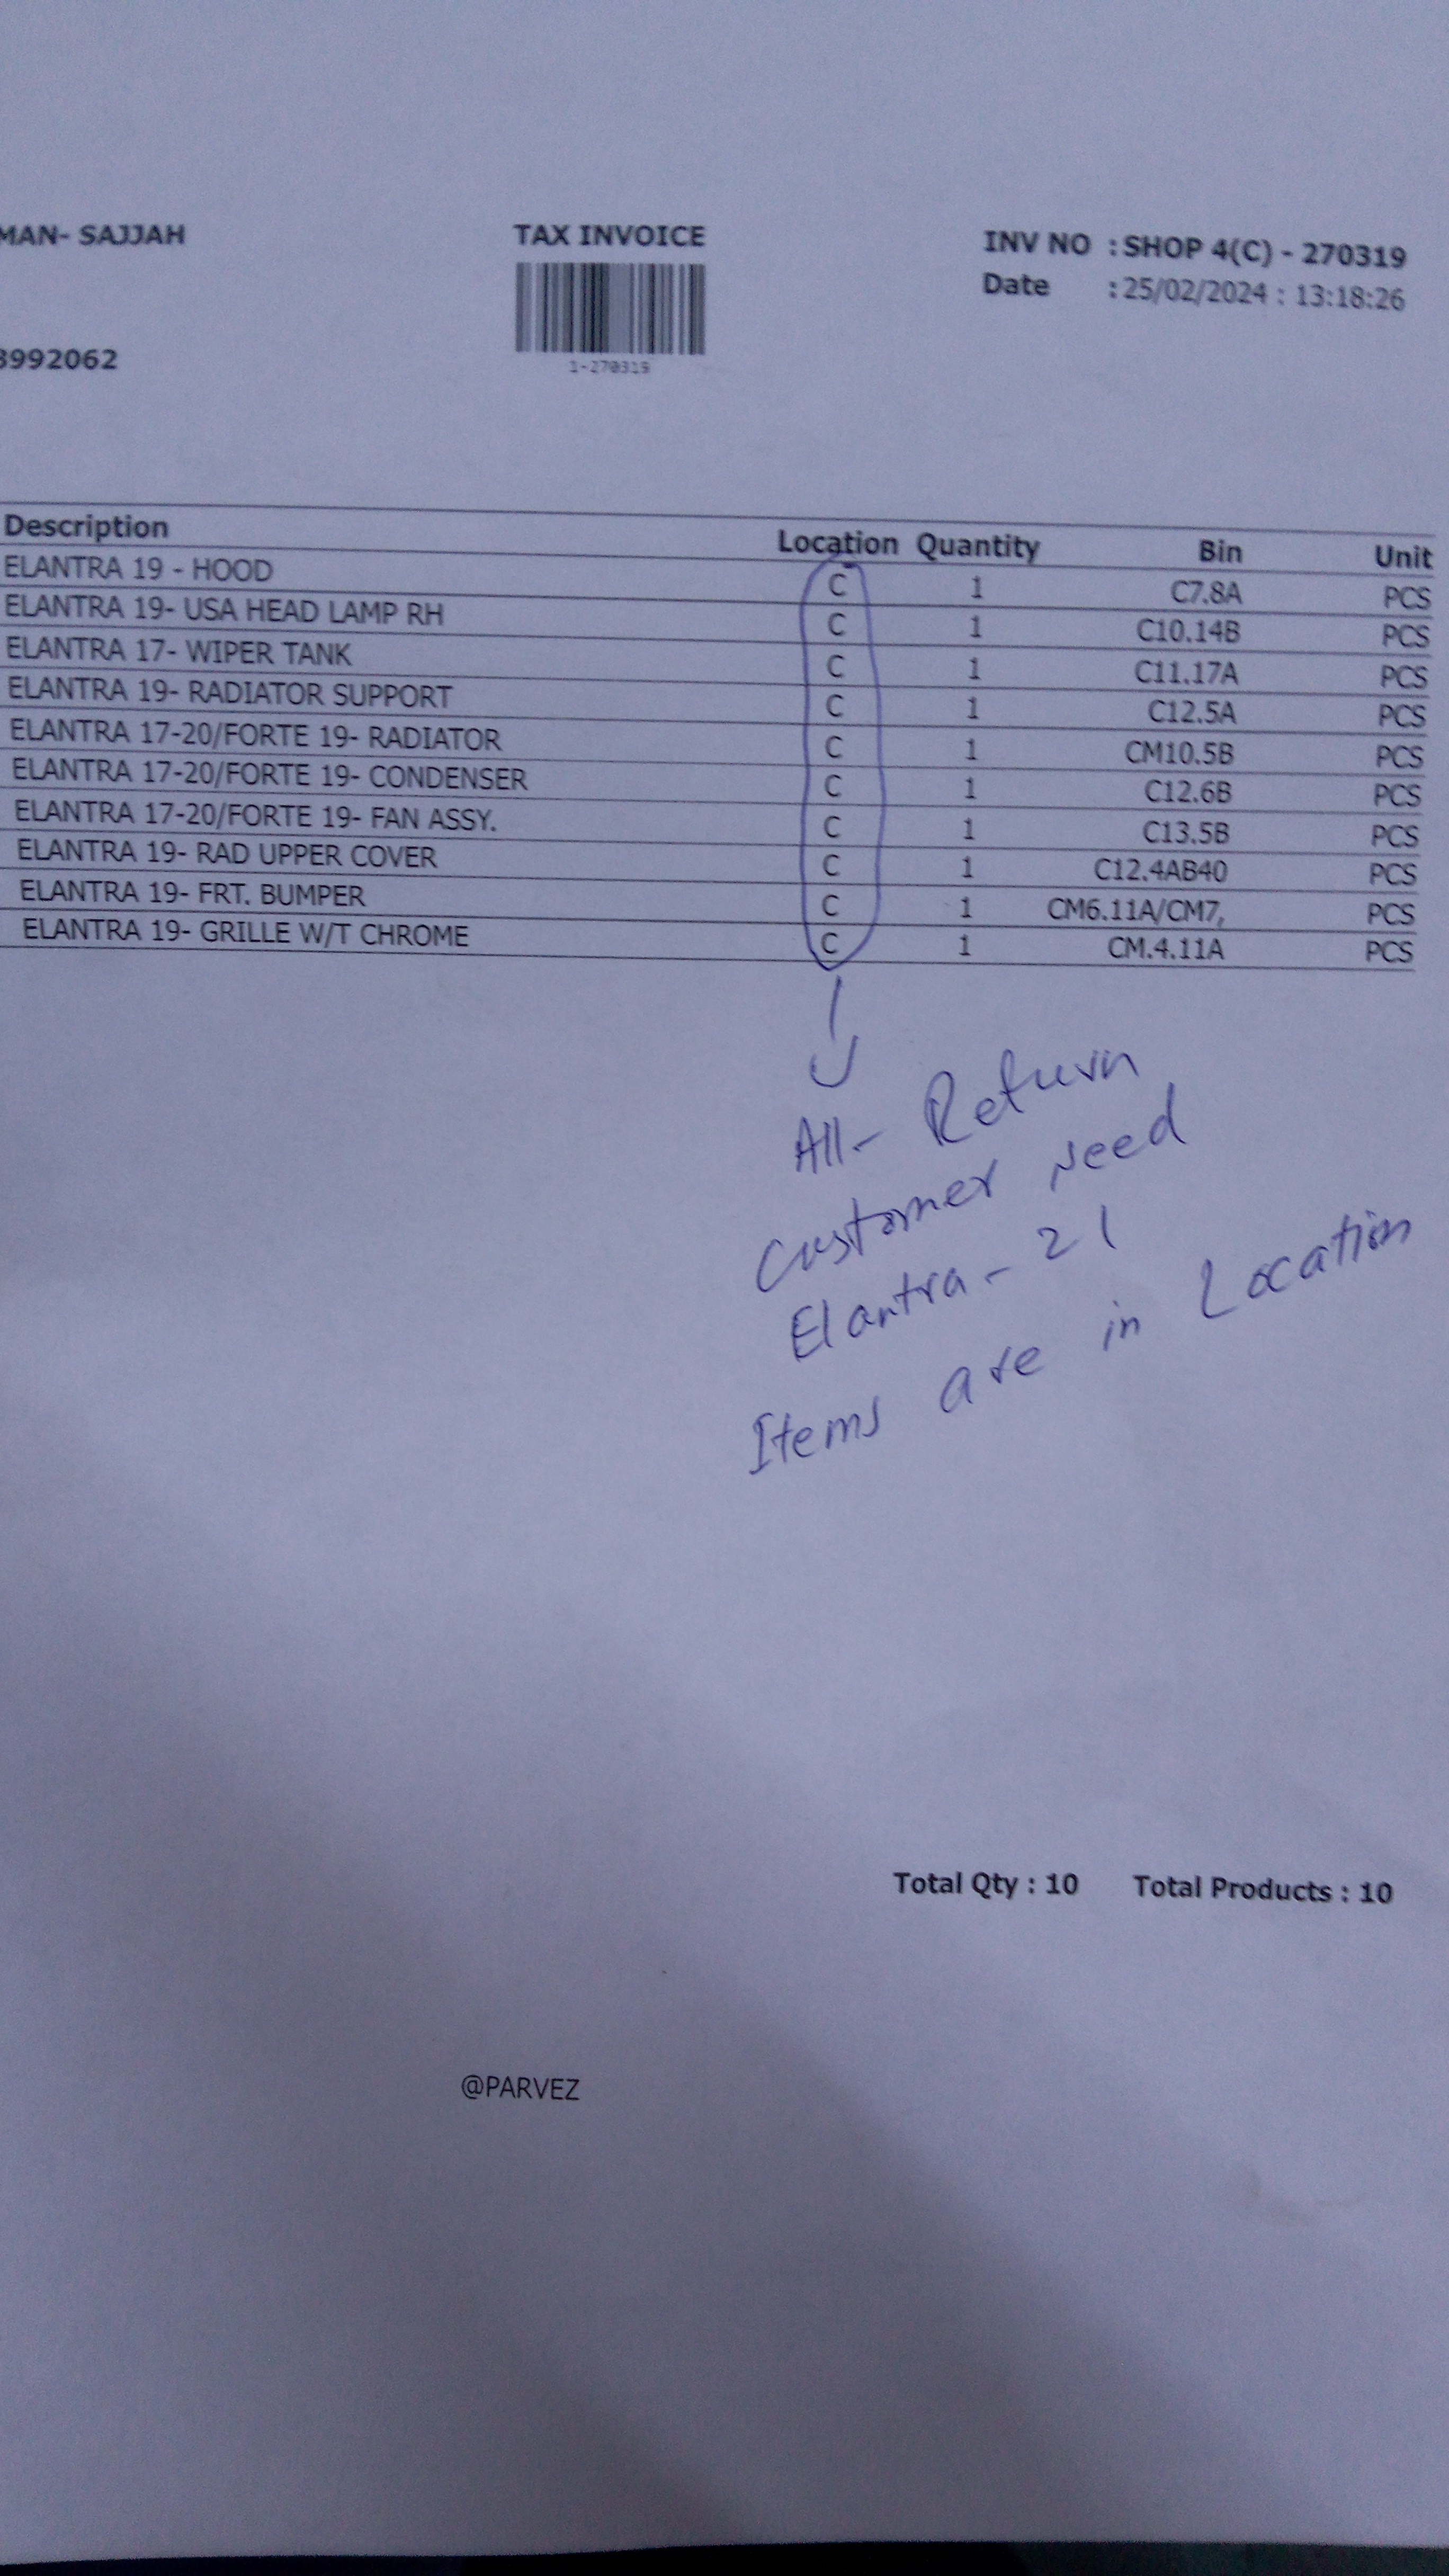 MAN- SAJJAH
TAX INVOICE
INV NO : SHOP 4(C) - 270319
Date : 25/02/2024 : 13:18:26
3992062
1-270319
Description Location Quantity Bin Unit
ELANTRA 19 - HOOD C 1 C7.8A PCS
ELANTRA 19- USA HEAD LAMP RH C 1 C10.14B PCS
ELANTRA 17- WIPER TANK C 1 C11.17A PCS
ELANTRA 19- RADIATOR SUPPORT C 1 C12.5A PCS
ELANTRA 17-20/FORTE 19- RADIATOR C 1 CM10.5B PCS
ELANTRA 17-20/FORTE 19- CONDENSER C 1 C12.6B PCS
ELANTRA 17-20/FORTE 19- FAN ASSY. C 1 C13.5B PCS
ELANTRA 19- RAD UPPER COVER C 1 C12.4AB40 PCS
ELANTRA 19- FRT. BUMPER C 1 CM6.11A/CM7, PCS
ELANTRA 19- GRILLE W/T CHROME C 1 CM.4.11A PCS
All- Return
Customer Need
Elantra - 21
Items are in Location
Total Qty : 10 Total Products : 10
@PARVEZ